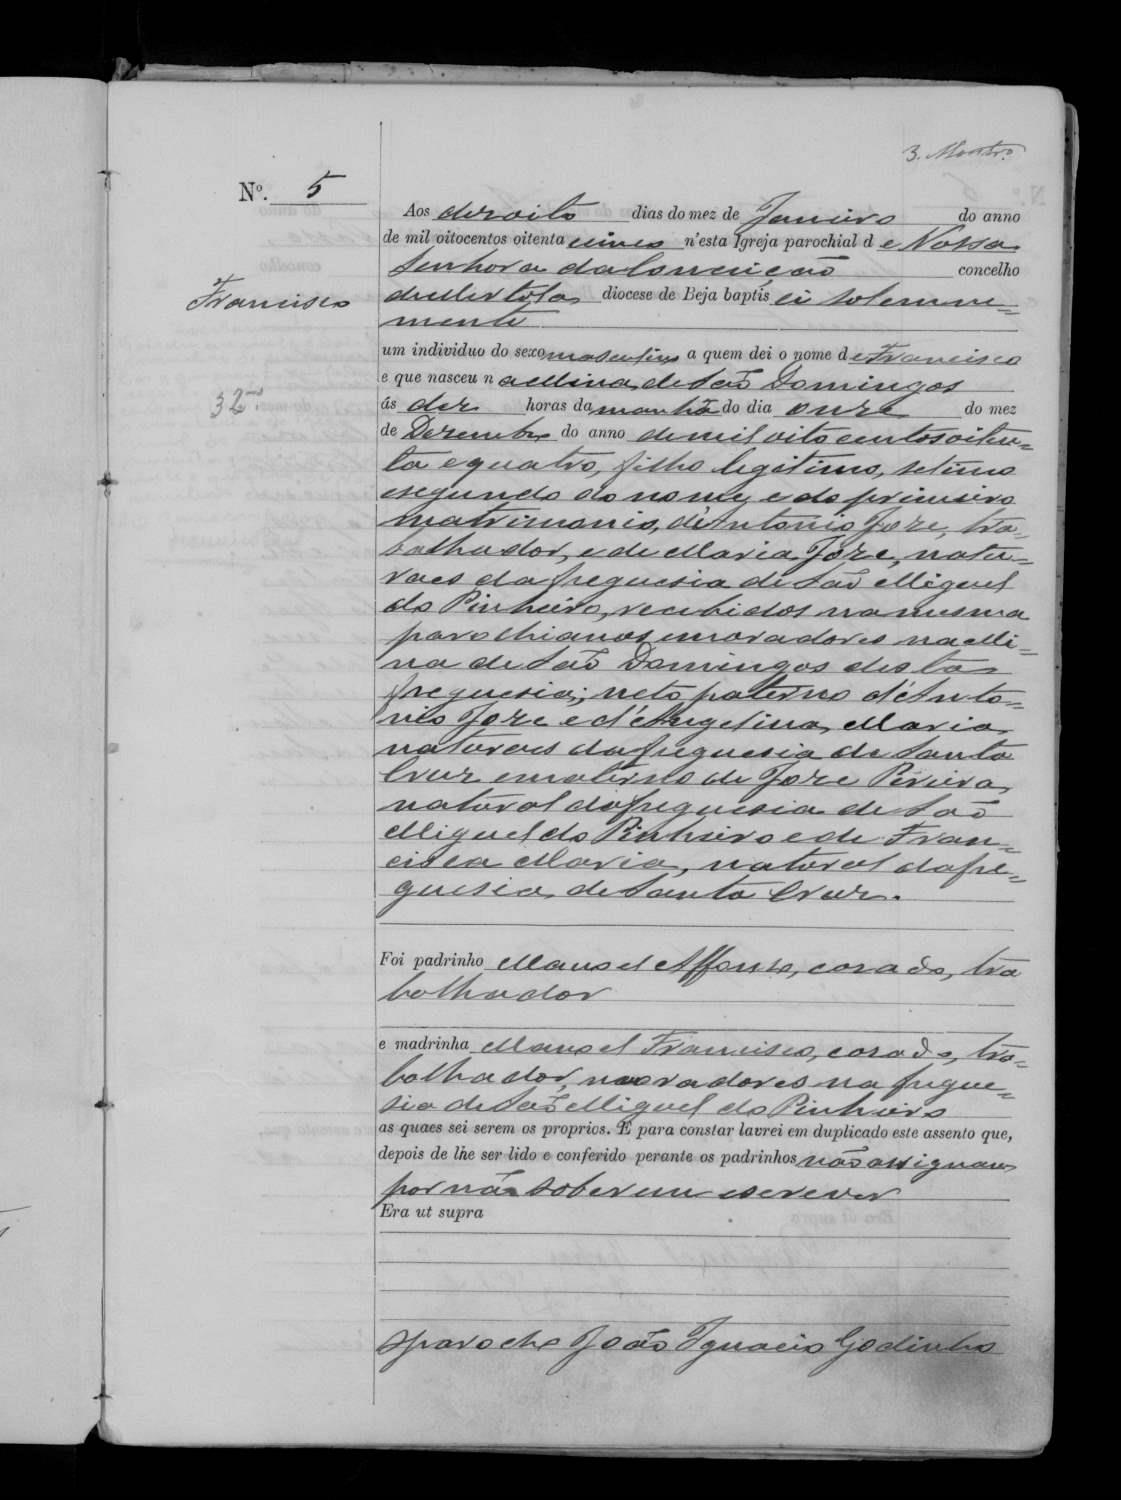 3. Mostro
Nº. 5
Aos dezoito dias do mez de Janeiro do anno
de mil oitocentos oitenta e cinco n'esta Igreja parochial de Nossa
Senhora da Conceição concelho
Francisco
de Mertola diocese de Beja baptisei solemne=
mente
um individuo do sexo masculino a quem dei o nome de Francisco
e que nasceu na Mina de São Domingos
32
ás dez horas da manhã do dia onze do mez
de Dezembro do anno de mil oitocentos oiten=
ta e quatro, filho legitimo, setimo
e segundo do nome, e do primeiro
matrimonio, d'Antonio Joze, tra=
balhador, e de Maria Joze, natu=
raes da freguesia de São Miguel
do Pinheiro, recebidos na mesma
parochianos e moradores na Mi=
na de São Domingos desta
freguesia; neto paterno d'Anto=
nio Joze e d'Angelina Maria
naturaes da freguesia de Santa
Cruz e materno de Joze Pereira,
natural da freguesia de São
Miguel do Pinheiro e de Fran=
cisca Maria, natural da fre=
guesia de Santa Cruz.
Foi padrinho Manoel Affonso, casado, tra
balhador
e madrinha Manoel Francisco, casado, tra=
balhador, moradores na fregue=
sia de São Miguel do Pinheiro
as quaes sei serem os proprios. E para constar lavrei em duplicado este assento que,
depois de lhe ser lido e conferido perante os padrinhos não assignam
por não saberem escrever
Era ut supra
O parocho João Ignacio Godinho